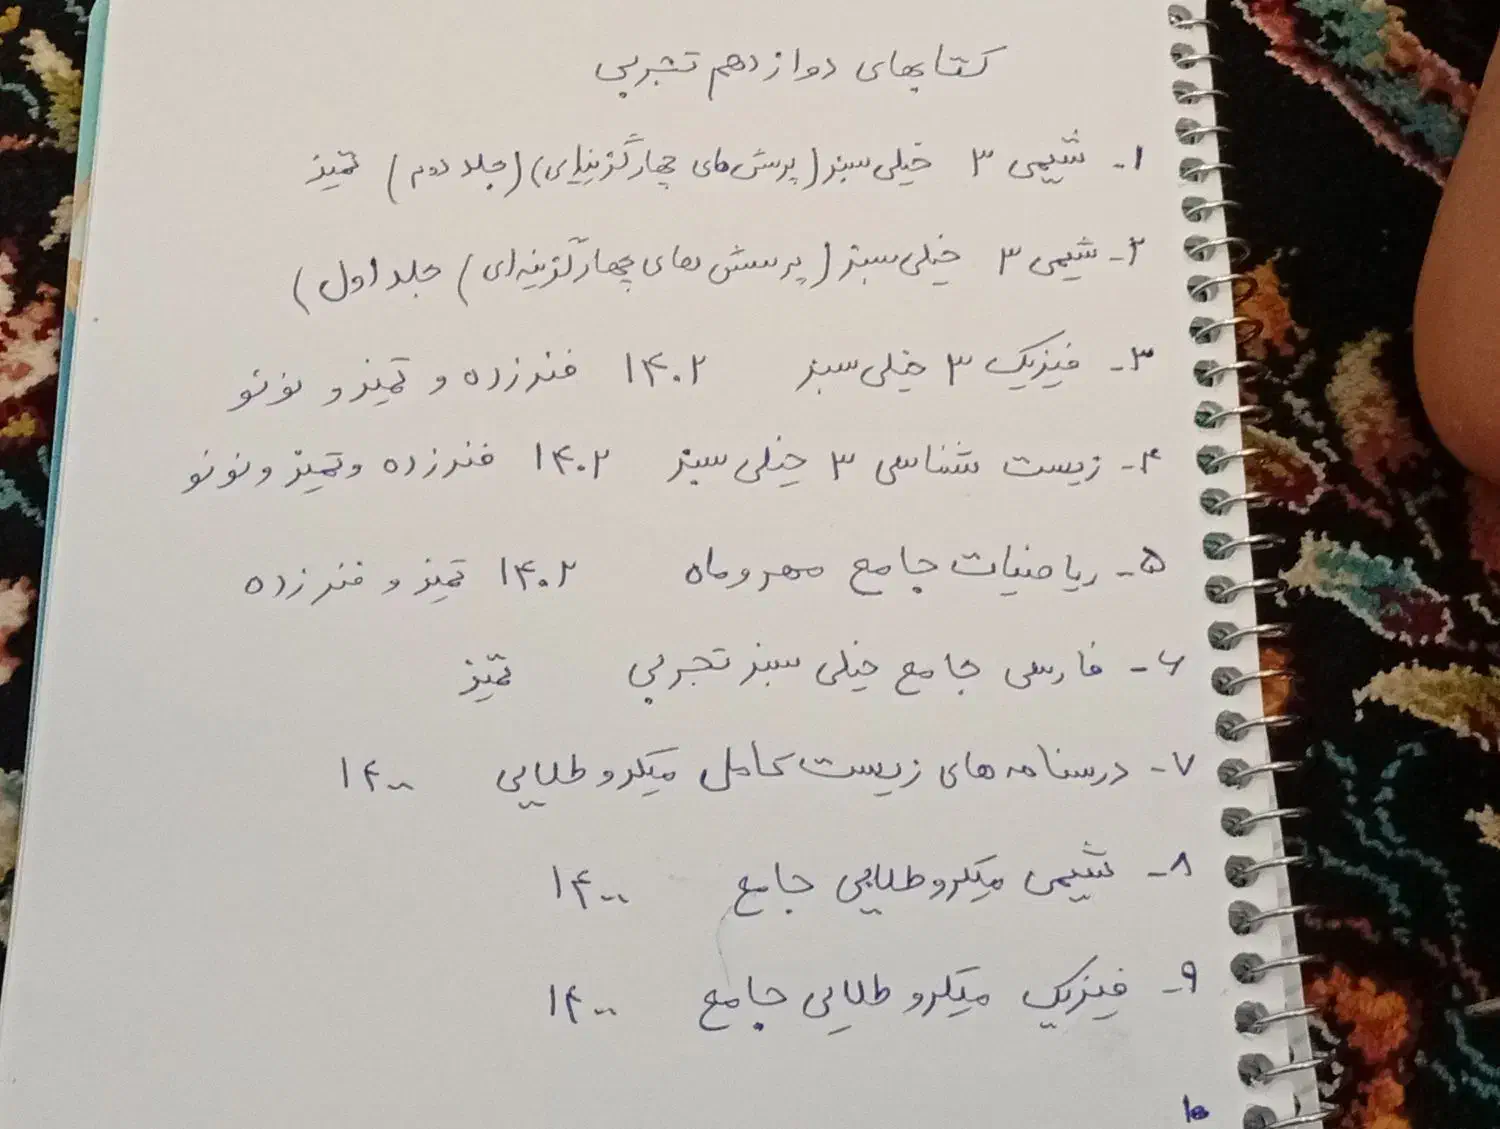 کتابهای دوازدهم تجربی
۱- شیمی ۳ خیلی سبز (پرسش های چهارگزینه‌ای) (جلد دوم) تمیز
۲- شیمی ۳ خیلی سبز (پرسش های چهارگزینه‌ای) جلد اول)
۳- فیزیک ۳ خیلی سبز ۱۴۰۲ فنرزده و تمیز و نونو
۴- زیست شناسی ۳ خیلی سبز ۱۴۰۲ فنرزده و تمیز و نونو
۵- ریاضیات جامع مهروماه ۱۴۰۲ تمیز و فنرزده
۶- فارسی جامع خیلی سبز تجربی تمیز
۷- درسنامه های زیست کامل میکرو طلایی ۱۴۰۰
۸- شیمی میکرو طلایی جامع ۱۴۰۰
۹- فیزیک میکرو طلایی جامع ۱۴۰۰
۱۰